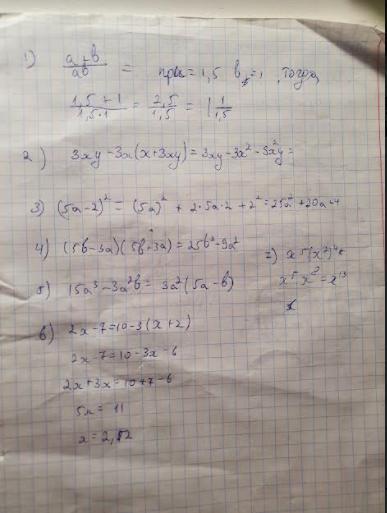 1) a+b/ab = при a=1,5 b=1, тогда
1,5+1/1,5·1 = 2,5/1,5 = 1 1/1,5
2) 3xy-3x(x+3xy)=3xy-3x²-9x²y=
3) (5a-2)²=(5a)²+2·5a·2+2²=25a²+20a+4
4) (5b-3a)(5b+3a)=25b²-9a²
5) 15a³-3a²b=3a²(5a-b)
7) x⁵(x²)⁴=
x⁵·x⁸=x¹³
6) 2x-7=10-3(x+2)
2x-7=10-3x-6
2x+3x=10+7-6
5x=11
x=2,2